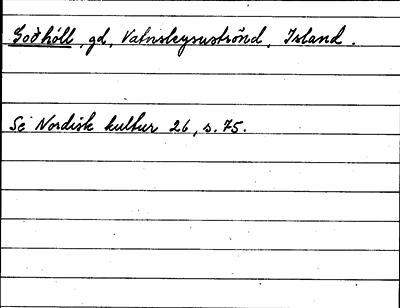 Goðhóll, gd, Vatnsleysuströnd, Island.
Se Nordisk kultur 26, s. 75.